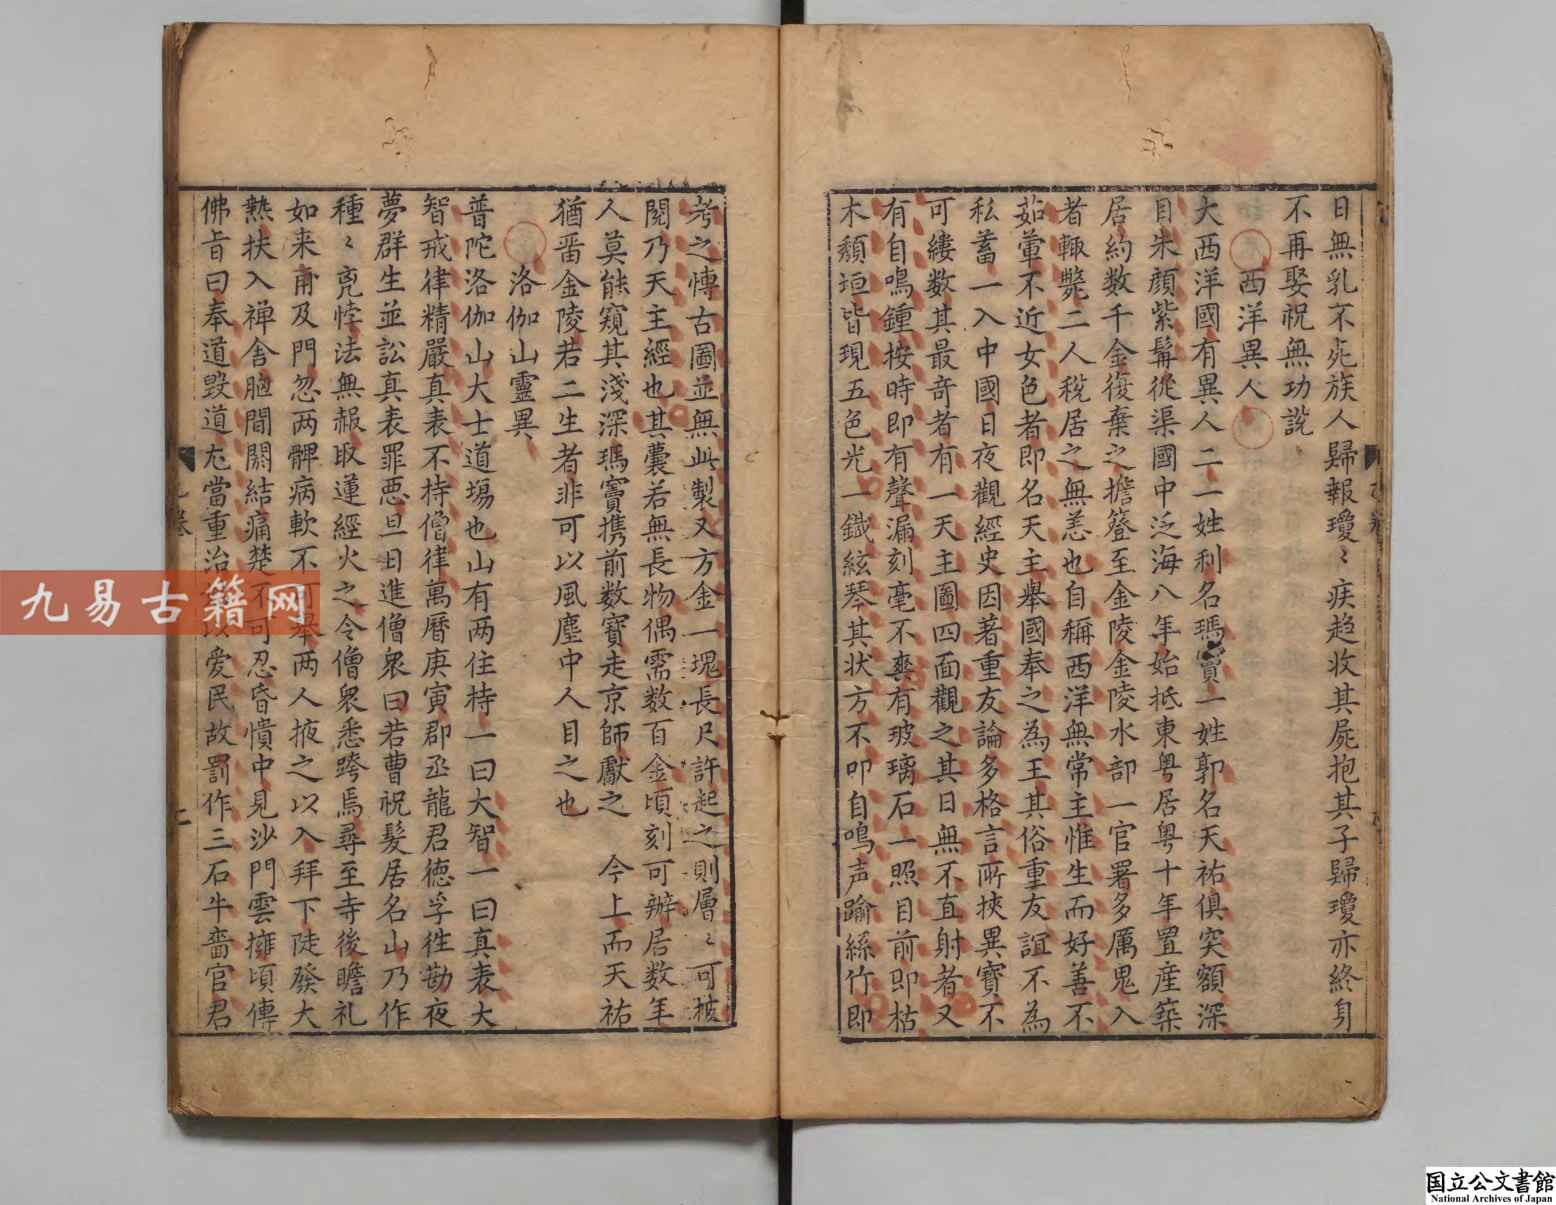 日無乳不死族人歸報瓊〻疾趋收其屍抱其子歸瓊亦終身
不再娶祝無功説
西洋異人
大西洋國有異人二一姓利名瑪竇一姓郭名天祐俱突額深
目朱顔紫髯從渠國中泛海八年始抵東粤居粤十年置産築
居約数千金復棄之擔簦至金陵金陵水部一官署多厲鬼入
者輙斃二人税居之無恙也自稱西洋無常主惟生而好善不
茹葷不近女色者即名天主舉國奉之為王其俗重友誼不為
私蓄一入中國日夜觀經史因著重友論多格言所挾異寶不
可縷数其最奇者有一天主圖四面觀之其目無不直射者又
有自鳴鍾按時即有聲漏刻毫不爽有玻璃石一照目前即枯
木頽垣皆現五色光一鐡絃琴其状方不叩自鳴声踰絲竹即
考之慱古圖並無此製又方金一塊長尺許起之則層〻可披
閲乃天主經也其囊若無長物偶需数百金頃刻可辦居数年
人莫能窺其淺深瑪竇携前数寶走京師獻之 今上而天祐
猶畱金陵若二生者非可以風塵中人目之也
洛伽山靈異
普陀洛伽山大士道塲也山有两住持一曰大智一曰真表大
智戒律精嚴真表不持僧律萬曆庚寅郡丞龍君徳孚徃勘夜
夢群生並訟真表罪惡旦日進僧衆曰若曹祝髮居名山乃作
種〻兇悖法無赧取蓮經火之令僧衆悉跨焉尋至寺後瞻礼
如来甫及門忽两髀病軟不可舉两人掖之以入拜下陡發大
熱扶入禅舎腦間闕結痛楚不可忍昏憒中見沙門雲擁頃傳
佛旨曰奉道毀道尤當重治以愛民故罰作三石牛啬官君
卷
九易古籍网
国立公文書館
National Archives of Japan